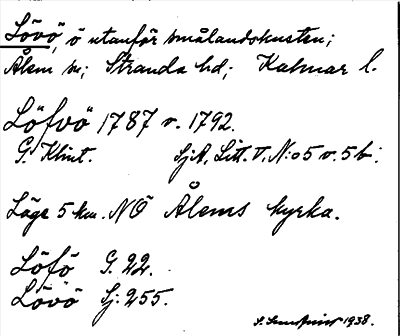 Lövö, ö utanför smålandskusten;
Ålem sn; Stranda hd; Kalmar l.
Löfvö 1787 o. 1792.
G. Klint. SjA, Litt. V. N:o 5 o. 5 b.
Läge 5 km. NÖ Ålems kyrka.
Löfö G. 22.
Lövö Sj: 255.
1938.